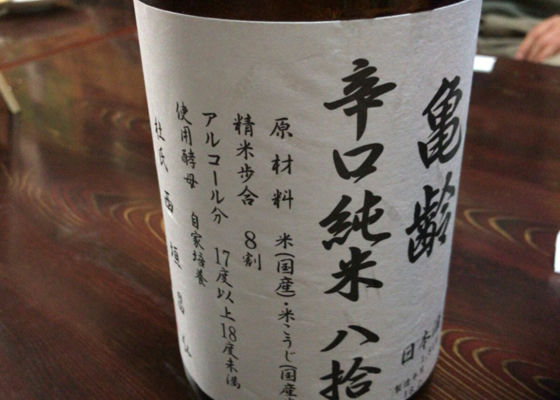 亀齢
日本酒
辛口純米 八拾
原材料 米(国産)・米こうじ(国産
精米歩合 8割
アルコール分 17度以上18度未満
使用酵母 自家培養
杜氏 西垣